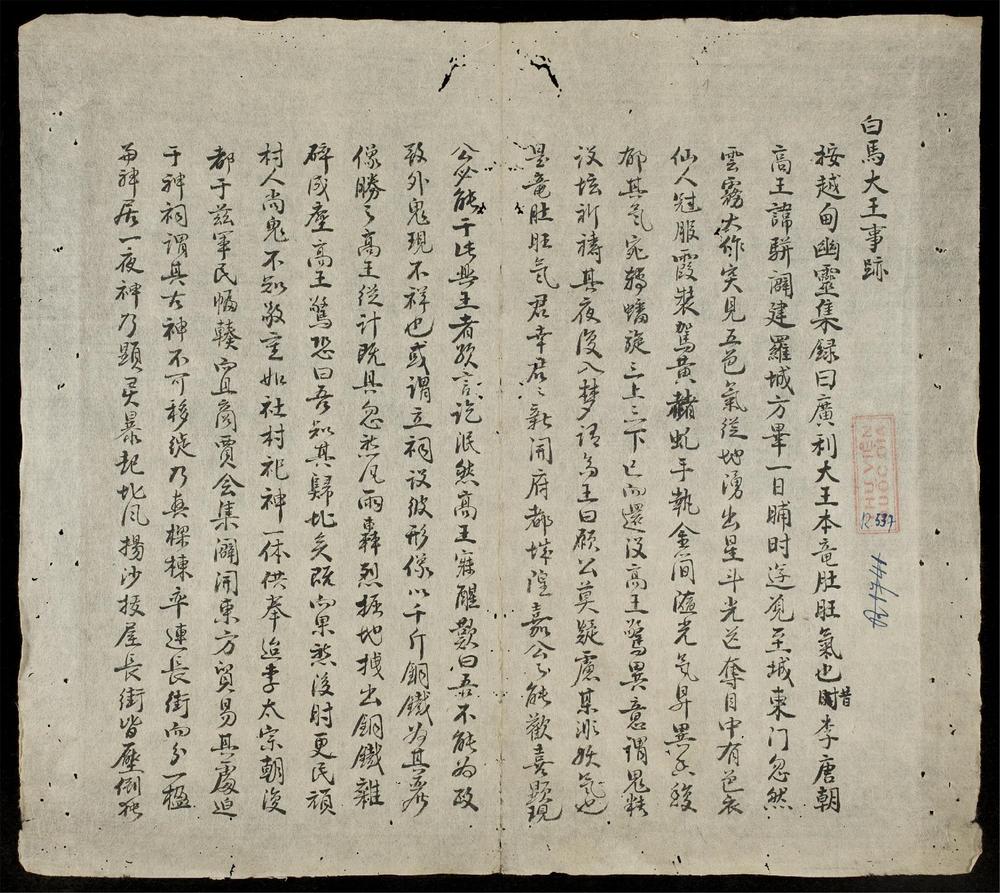 白馬大王事跡
按越甸幽靈集録曰廣利大王本竜肚旺氣也昔時李唐朝
高王諱駢闢建羅城方畢一日晡时逰覓至城東门忽然
雲霧大作突見五色氣從地湧出星斗光芒奪目中有色衣
仙人冠服霞裝駕黄虬手执金简隨光気昇異香
郁其気宛轉蟠旋三上三下已而還没高王驚異意謂鬼
设坛祈禱其夜復入梦谓高王曰願公莫疑慮某非妖气也
是竜肚旺気君幸君君新開府都城隍嘉公能歡喜顕現
公必能于此興王者 言讫泯然高王寐醒歎曰吾不能为政
致外鬼現不祥也或谓立祠设彼形像以千斤銅鐵为其
像勝之高王從计既具忽然风雨轟烈掘地 出銅鐵雜
碎成塵高王驚恐曰吾知其歸北矣既而果然後时更民頑
村人尚鬼不知敬重如社村祀神一体供奉迨李太宗朝復
都于兹軍民輻輳宜商賈会集闢開東方貿易其處迫
于神祠谓其古神不可移徙乃真樑棟卒連長街而分一楹
为神居一夜神乃顕灵暴起北风揚沙拔屋長街皆壓倒
THƯ VIỆN
QUỐC GIA
R.537